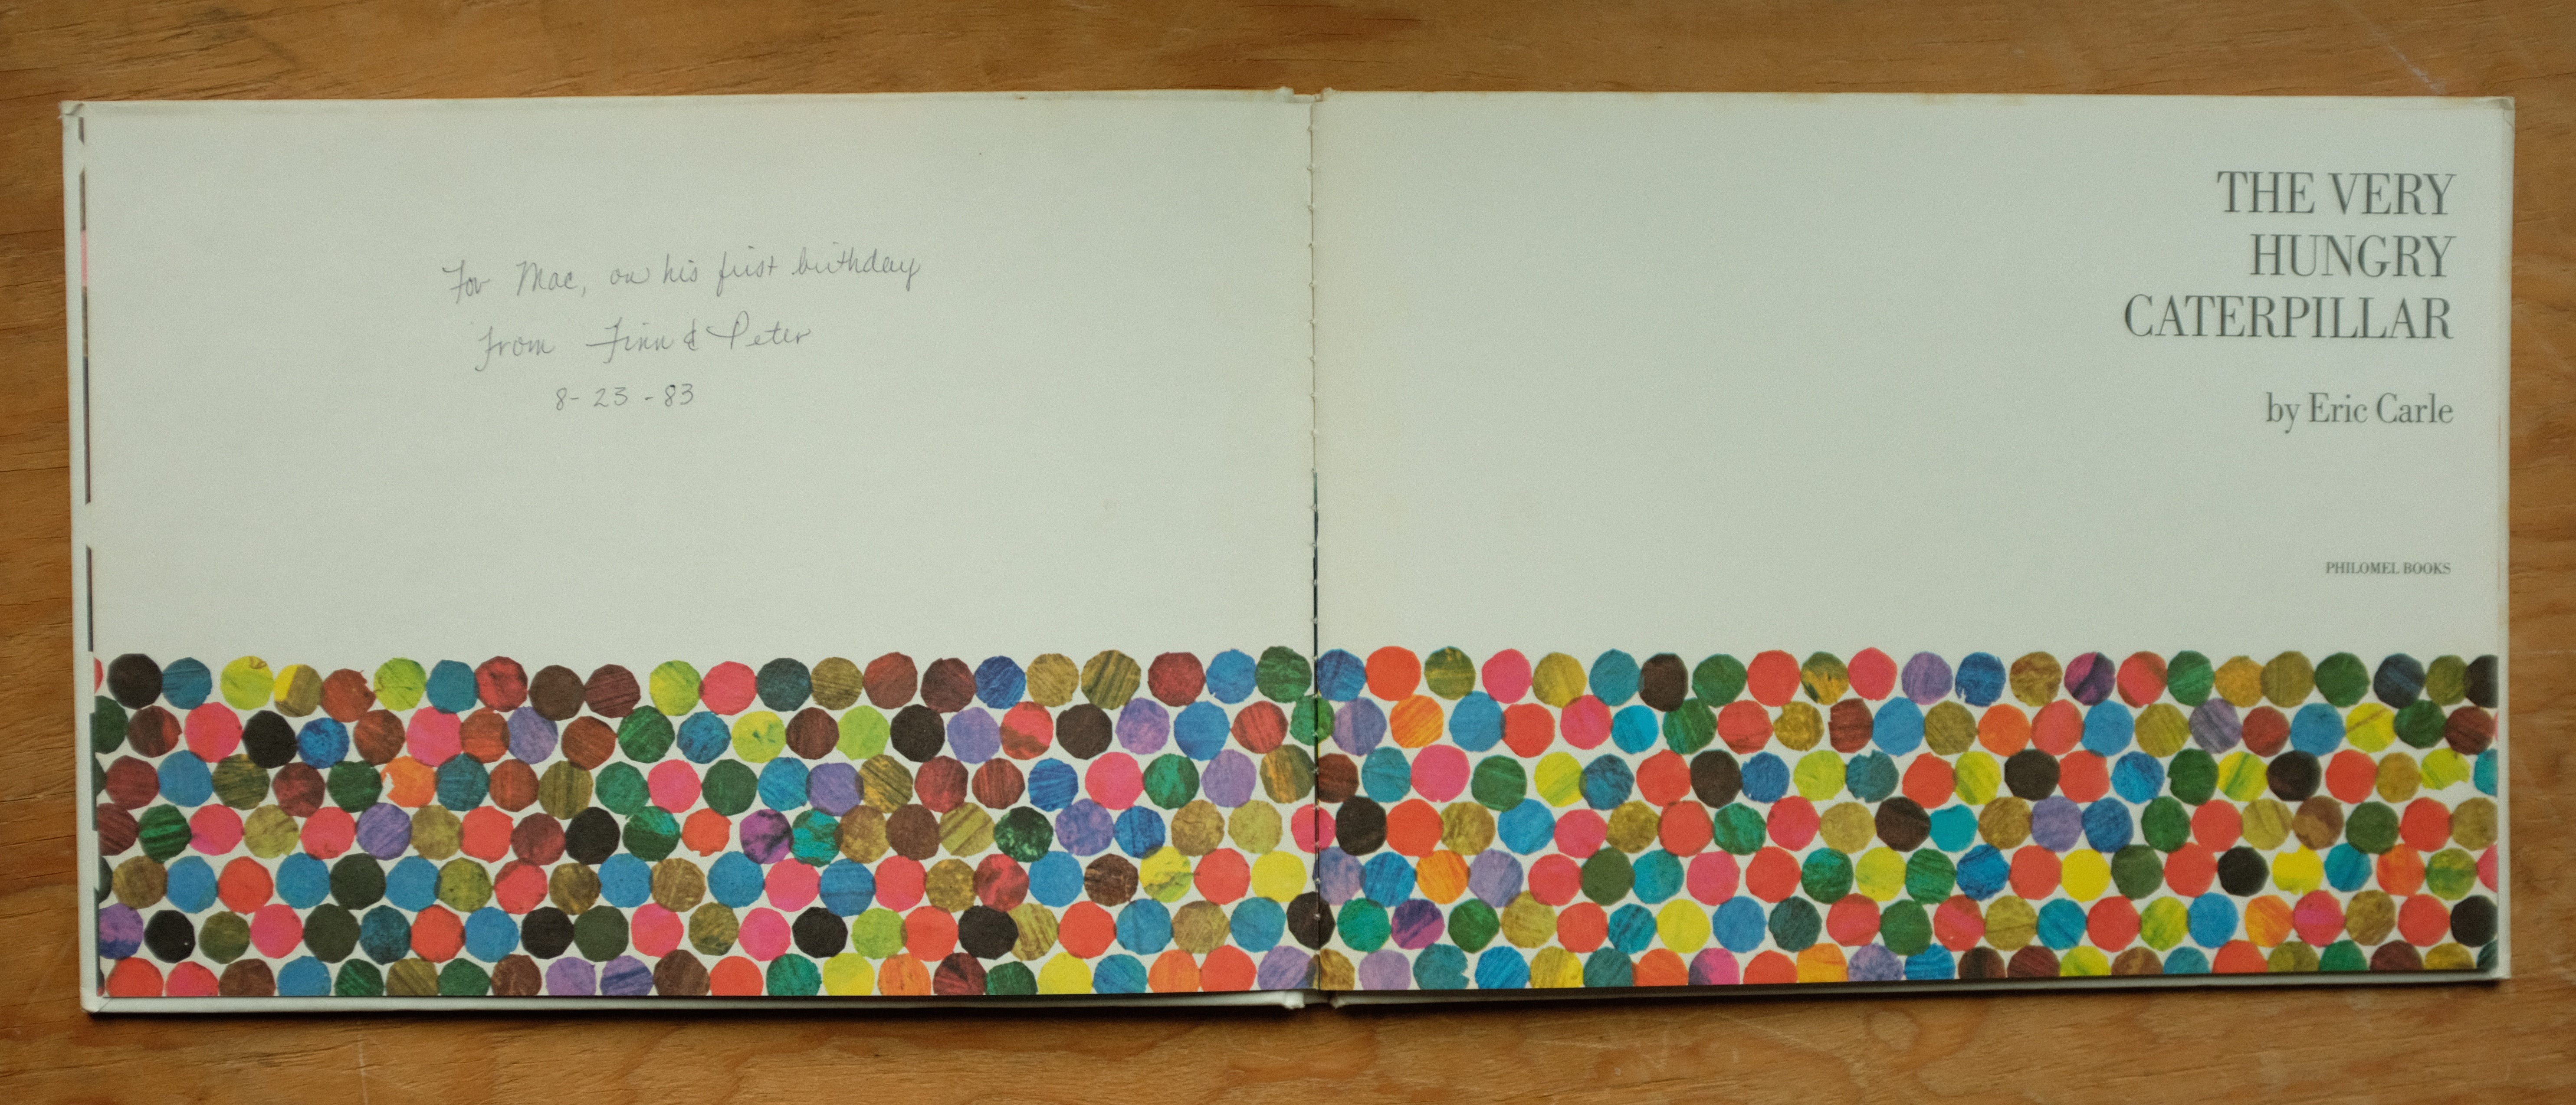 For Mac, on his first birthday
From Finn & Peter
8-23-83
THE VERY
HUNGRY
CATERPILLAR
by Eric Carle
PHILOMEL BOOKS